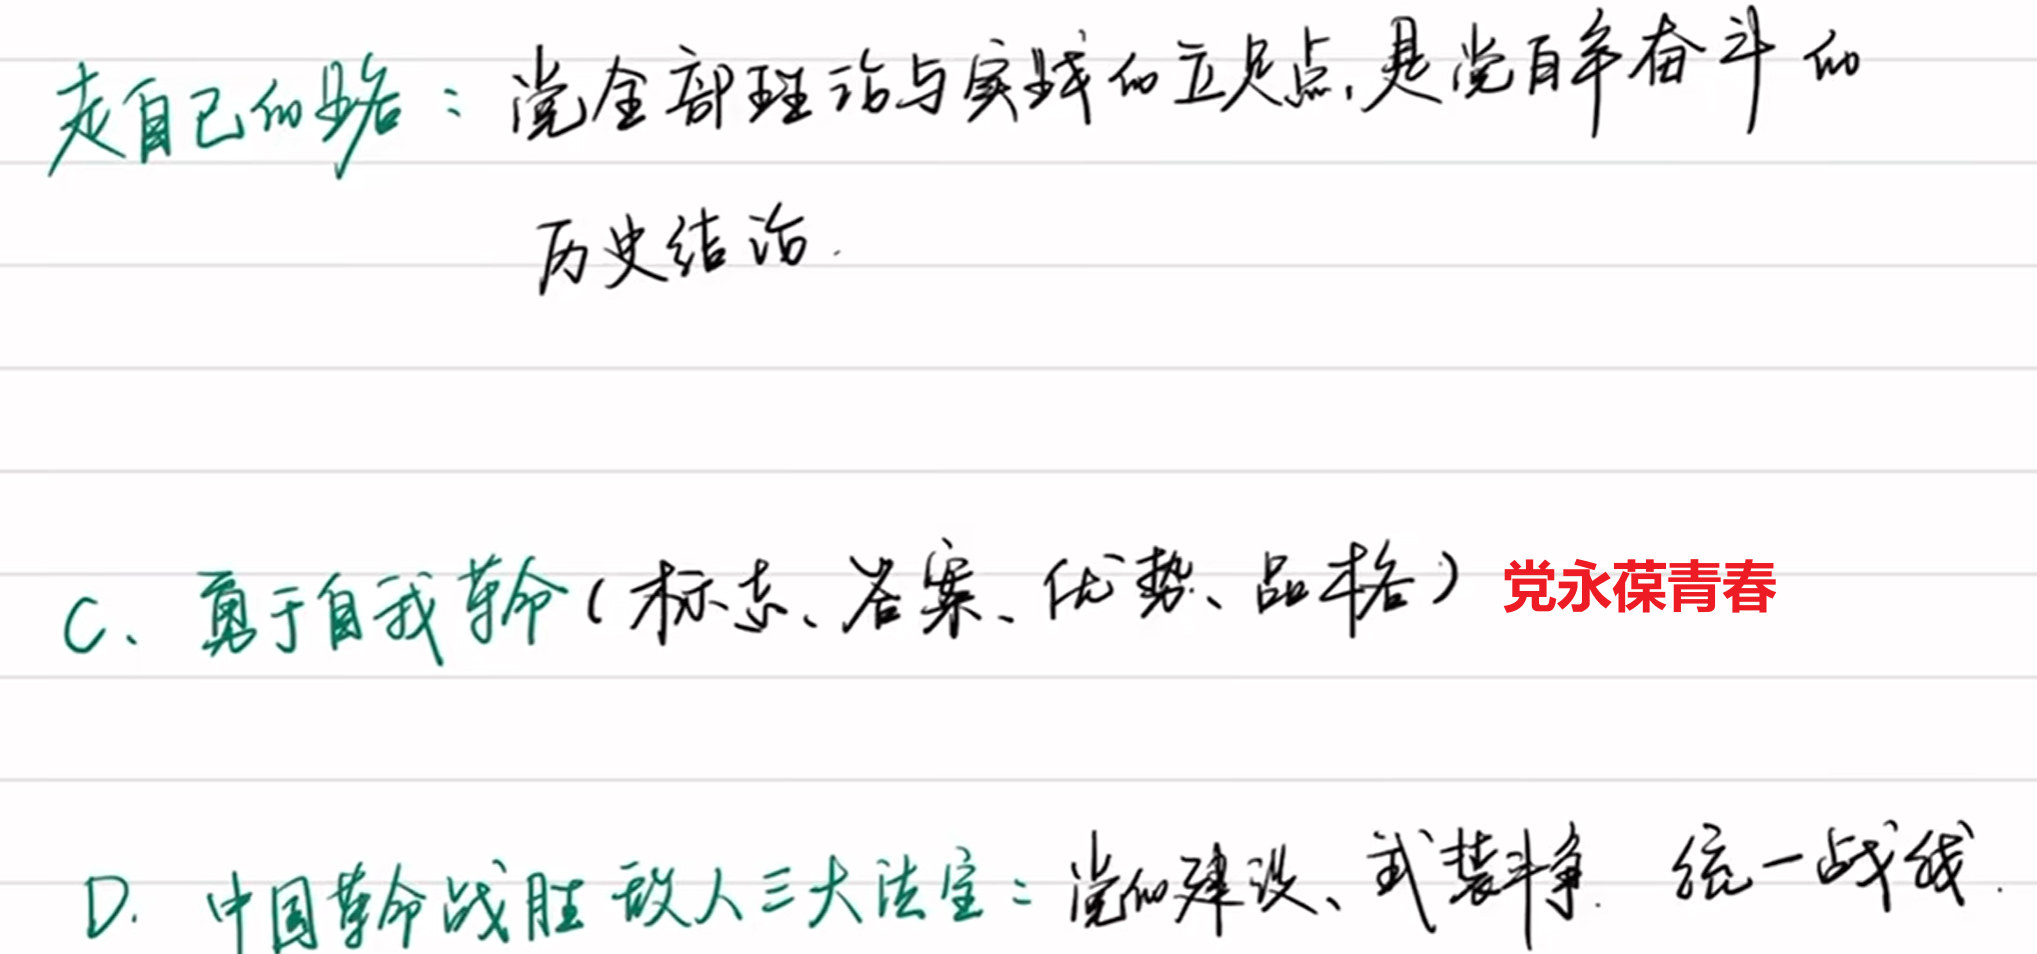 走自己的路：党全部理论与实践的立足点，是党百年奋斗的
历史结论.
C、勇于自我革命（标志、答案、优势、品格）党永葆青春
D. 中国革命战胜敌人三大法宝：党的建设、武装斗争. 统一战线.